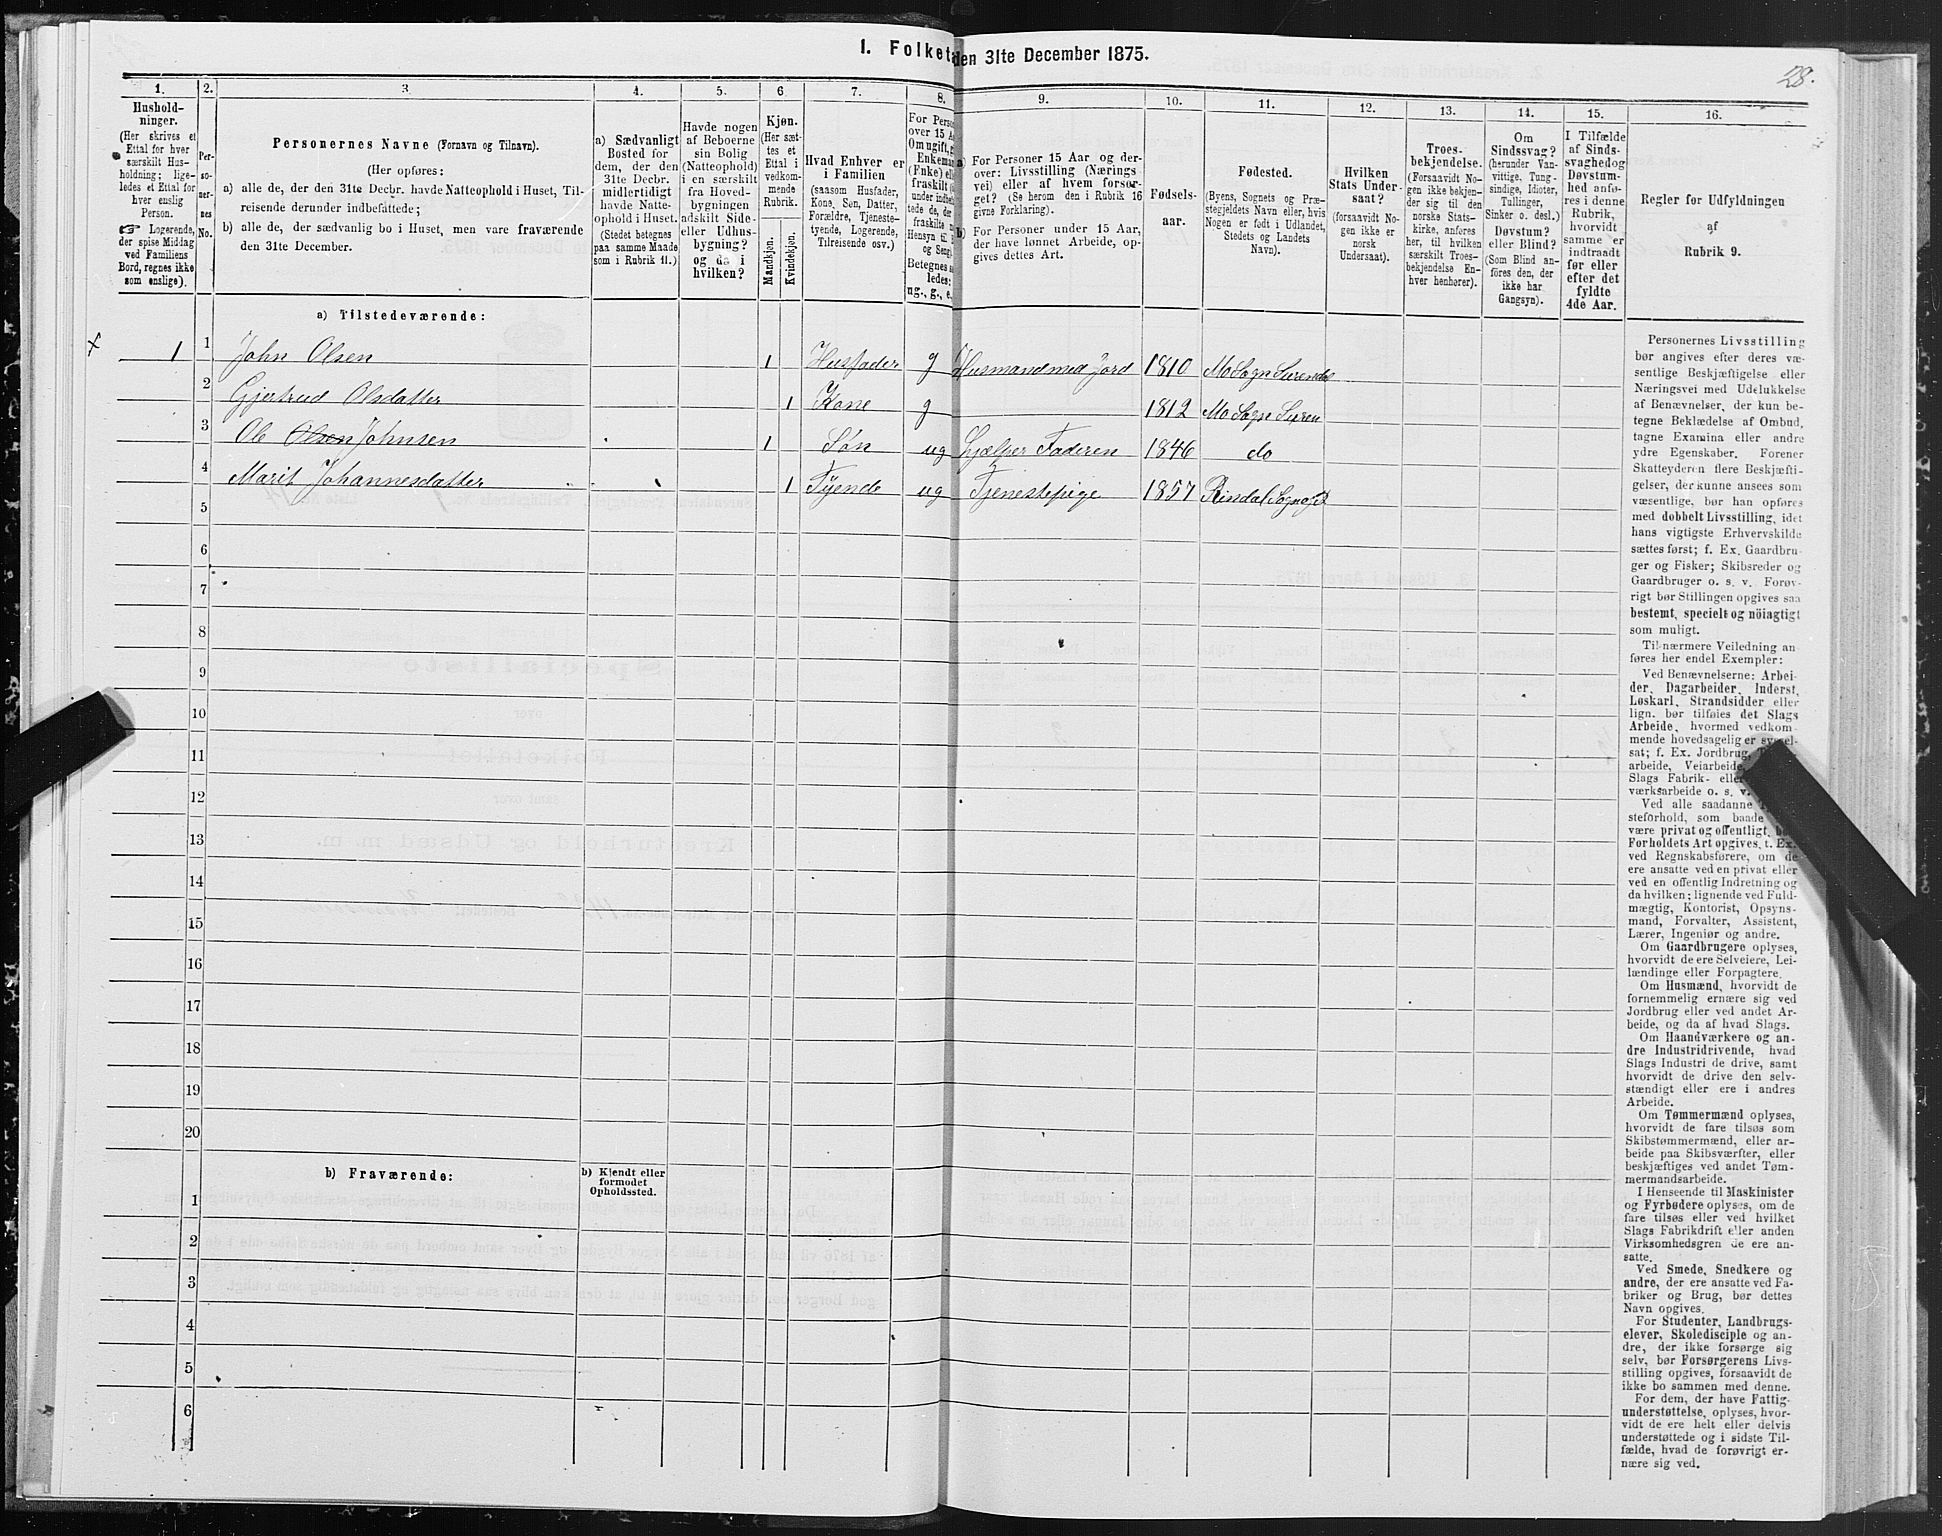 I. Folket den 31te December 1875.
28.
1.
Hushold-
ninger.
(Her skrives et
Ettal for hver
særskilt Hus-
holdning; lige-
ledes et Ettal for
hver enslig
Person.
☞ Logerende,
der spise Middag
ved Familiens
Bord, regnes ikke
som enslige).
2.
Per-
so-
ner-
nes
No.
3.
Personernes Navne (Fornavn og Tilnavn).
(Her opføres:
a) alle de, der den 31te Decbr. havde Natteophold i Huset, Til-
reisende derunder indbefattede;
b) alle de, der sædvanlig bo i Huset, men vare fraværende
den 31te December.
4.
a) Sædvanligt
Bosted for
dem, der den
31te Decbr.
midlertidigt
havde Natte-
ophold i Huset.
(Stedet betegnes
paa samme Maade
som i Rubrik 11.)
5.
Havde nogen
af Beboerne
sin Bolig
(Natteophold)
i en særskilt
fra Hoved-
bygningen
adskilt Side-
eller Udhus-
bygning?
og da i
hvilken?
6.
Kjøn.
(Her sæt-
tes et
Ettal i
vedkom-
mende
Rubrik.
Mandkjøn.
Kvindekjøn.
7.
Hvad Enhver er
i Familien
(saasom Husfader,
Kone, Søn, Datter,
Forældre, Tjeneste-
tyende, Logerende,
Tilreisende osv.)
8.
For Perso
over 15 A
Om ugift, g
Enkeman
(Enke) ell
fraskilt
under indbe
tede de, de
fraskilte
Hensyn til
og Seng)
Betegnes s
ledes:
ug., g., e.
9.
a) For Personer 15 Aar og der-
over: Livsstilling (Nærings-
vei) eller af hvem forsør-
get? (Se herom den i Rubrik 16
givne Forklaring).
b) For Personer under 15 Aar,
der have lønnet Arbeide, op-
gives dettes Art.
10.
Fødsels-
aar.
11.
Fødested.
(Byens, Sognets og Præ-
stegjeldets Navn eller, hvis
Nogen er født i Udlandet,
Stedets og Landets
Navn).
12.
Hvilken
Stats Under-
saat?
(forsaavidt No-
gen ikke er
norsk
Undersaat).
13.
Troes-
bekjendelse.
(Forsaavidt No-
gen ikke bekjen-
der sig til den
norske Stats-
kirke, anføres
her, til hvilken
særskilt Troes-
bekjendelse En-
hver henhører).
14.
Om
Sindssvag?
(herunder Van-
vittige, Tung-
sindige, Idioter,
Tullinger,
Sinker o. desl.)
Døvstum?
eller Blind?
(Som Blind an-
føres den, der
ikke har
Gangsyn).
15.
I Tilfælde
af Sinds-
svaghed og
Døvstum-
hed anfø-
res i denne
Rubrik,
hvorvidt
samme er
indtraadt
før eller
efter det
fyldte
4de Aar.
16.
Regler for Udfyldningen
af
Rubrik 9.
a) Tilstedeværende:
x 1 1 John Olsen 1 Husfader g Husmand med Jord 1810 Mo Sogn Surendal
2 Gjertrud Olsdatter 1 Kone g 1812 Mo Sogn Suren
3 Ole Olsen Johnsen 1 Søn ug hjælper Faderen 1846 do
4 Marit Johannesdatter 1 Tyende ug Tjenestepige 1857 Rindal Sogn
5
6
7
8
9
10
11
12
13
14
15
16
17
18
19
20
b) Fraværende:
b) Kjendt eller
formodet
Opholdssted.
1
2
3
4
5
6
Personernes Livsstilling
bør angives efter deres væ-
sentlige Beskjæftigelse eller
Næringsvei med Udelukkelse
af Benævnelser, der kun be-
tegne Beklædelse af Ombud,
tagne Examina eller andre
ydre Egenskaber. Forener
Skatteyderen flere Beskjæfti-
gelser, der kunne ansees som
væsentlige, bør han opføres
med dobbelt Livsstilling, idet
hans vigtigste Erhvervskilde
sættes først; f. Ex. Gaardbru-
ger og Fisker; Skibsreder og
Gaardbruger o. s. v. Forøv-
rigt bør Stillingen opgives saa
bestemt, specielt og nøiagtigt
som muligt.
Til nærmere Veiledning an-
føres her endel Exempler:
Ved Benævnelserne: Arbei-
der, Dagarbeider, Inderst,
Løskarl, Strandsidder eller
lign. bør tilføies det Slags
Arbeide, hvormed vedkom-
mende hovedsagelig er syssel-
sat; f. Ex. Jordbrug, T
arbeide, Veiarbeide,
Slags Fabrik- eller
værksarbeide o. s. v.
Ved alle saadanne
steforhold, som baade
være privat og offentligt, bør
Forholdets Art opgives, t. Ex.
ved Regnskabsførere, om de
ere ansatte ved en privat eller
ved en offentlig Indretning og
da hvilken; lignende ved Fuld-
mægtig, Kontorist, Opsyns-
mand, Forvalter, Assistent,
Lærer, Ingeniør og andre.
Om Gaardbrugere oplyses,
hvorvidt de ere Selveiere, Lei-
lændinge eller Forpagtere.
Om Husmænd, hvorvidt de
fornemmelig ernære sig ved
Jordbrug eller ved andet Ar-
beide, og da af hvad Slags.
Om Haandværkere og an-
dre Industridrivende, hvad
Slags Industri de drive, samt
hvorvidt de drive den selv-
stændigt eller ere i andres
Arbeide.
Om Tømmermænd oplyses,
hvorvidt de fare tilsøs som
Skibstømmermænd, eller ar-
beide paa Skibsværfter, eller
beskjæftiges ved andet Tøm-
mermandsarbeide.
I Henseende til Maskinister
og Fyrbødere oplyses, om de
fare tilsøs eller ved hvilket
Slags Fabrikdrift eller anden
Virksomhedsgren de ere an-
satte.
Ved Smede, Snedkere og
andre, der ere ansatte ved Fa-
briker og Brug, bør dettes
Navn opgives.
For Studenter, Landbrugs-
elever, Skoledisciple og an-
dre, der ikke forsørge sig
selv, bør Forsørgerens Livs-
stilling opgives, forsaavidt de
ikke bo sammen med denne.
For dem, der have Fattig-
understøttelse, oplyses, hvor-
vidt de ere helt eller delvis
understøttede og i sidste Til-
fælde, hvad de forøvrigt er-
nære sig ved.